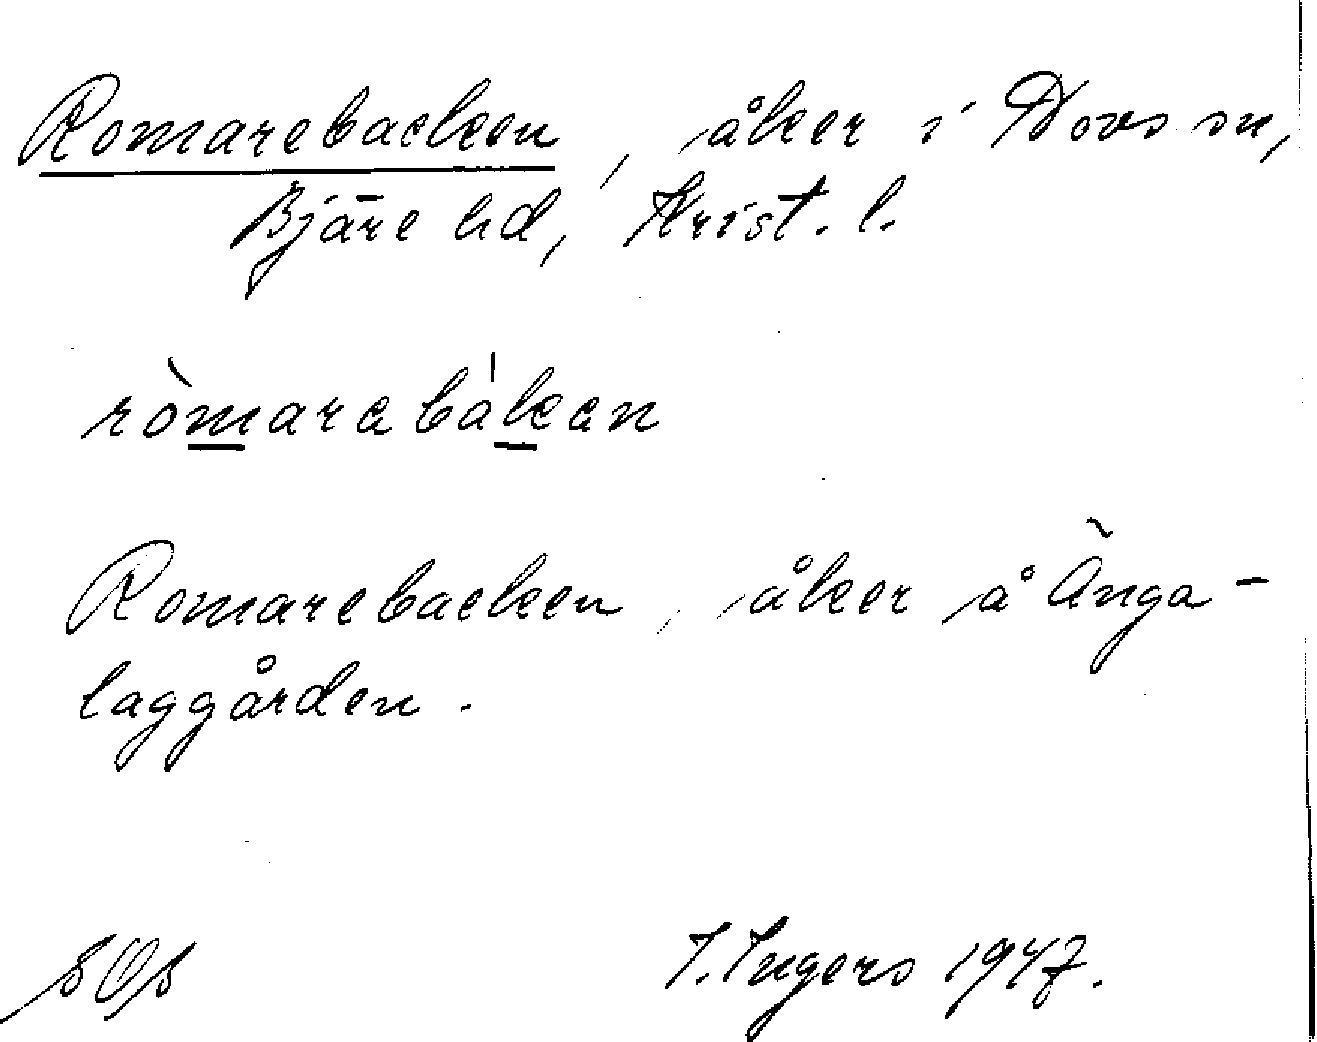 Romarebacken, åker i Hovs sn,
Bjäre hd, Krist. l.
ròmarabákan
Romarebacken, åker å Änga-
laggården.
SOS
I. Ingers 1947.